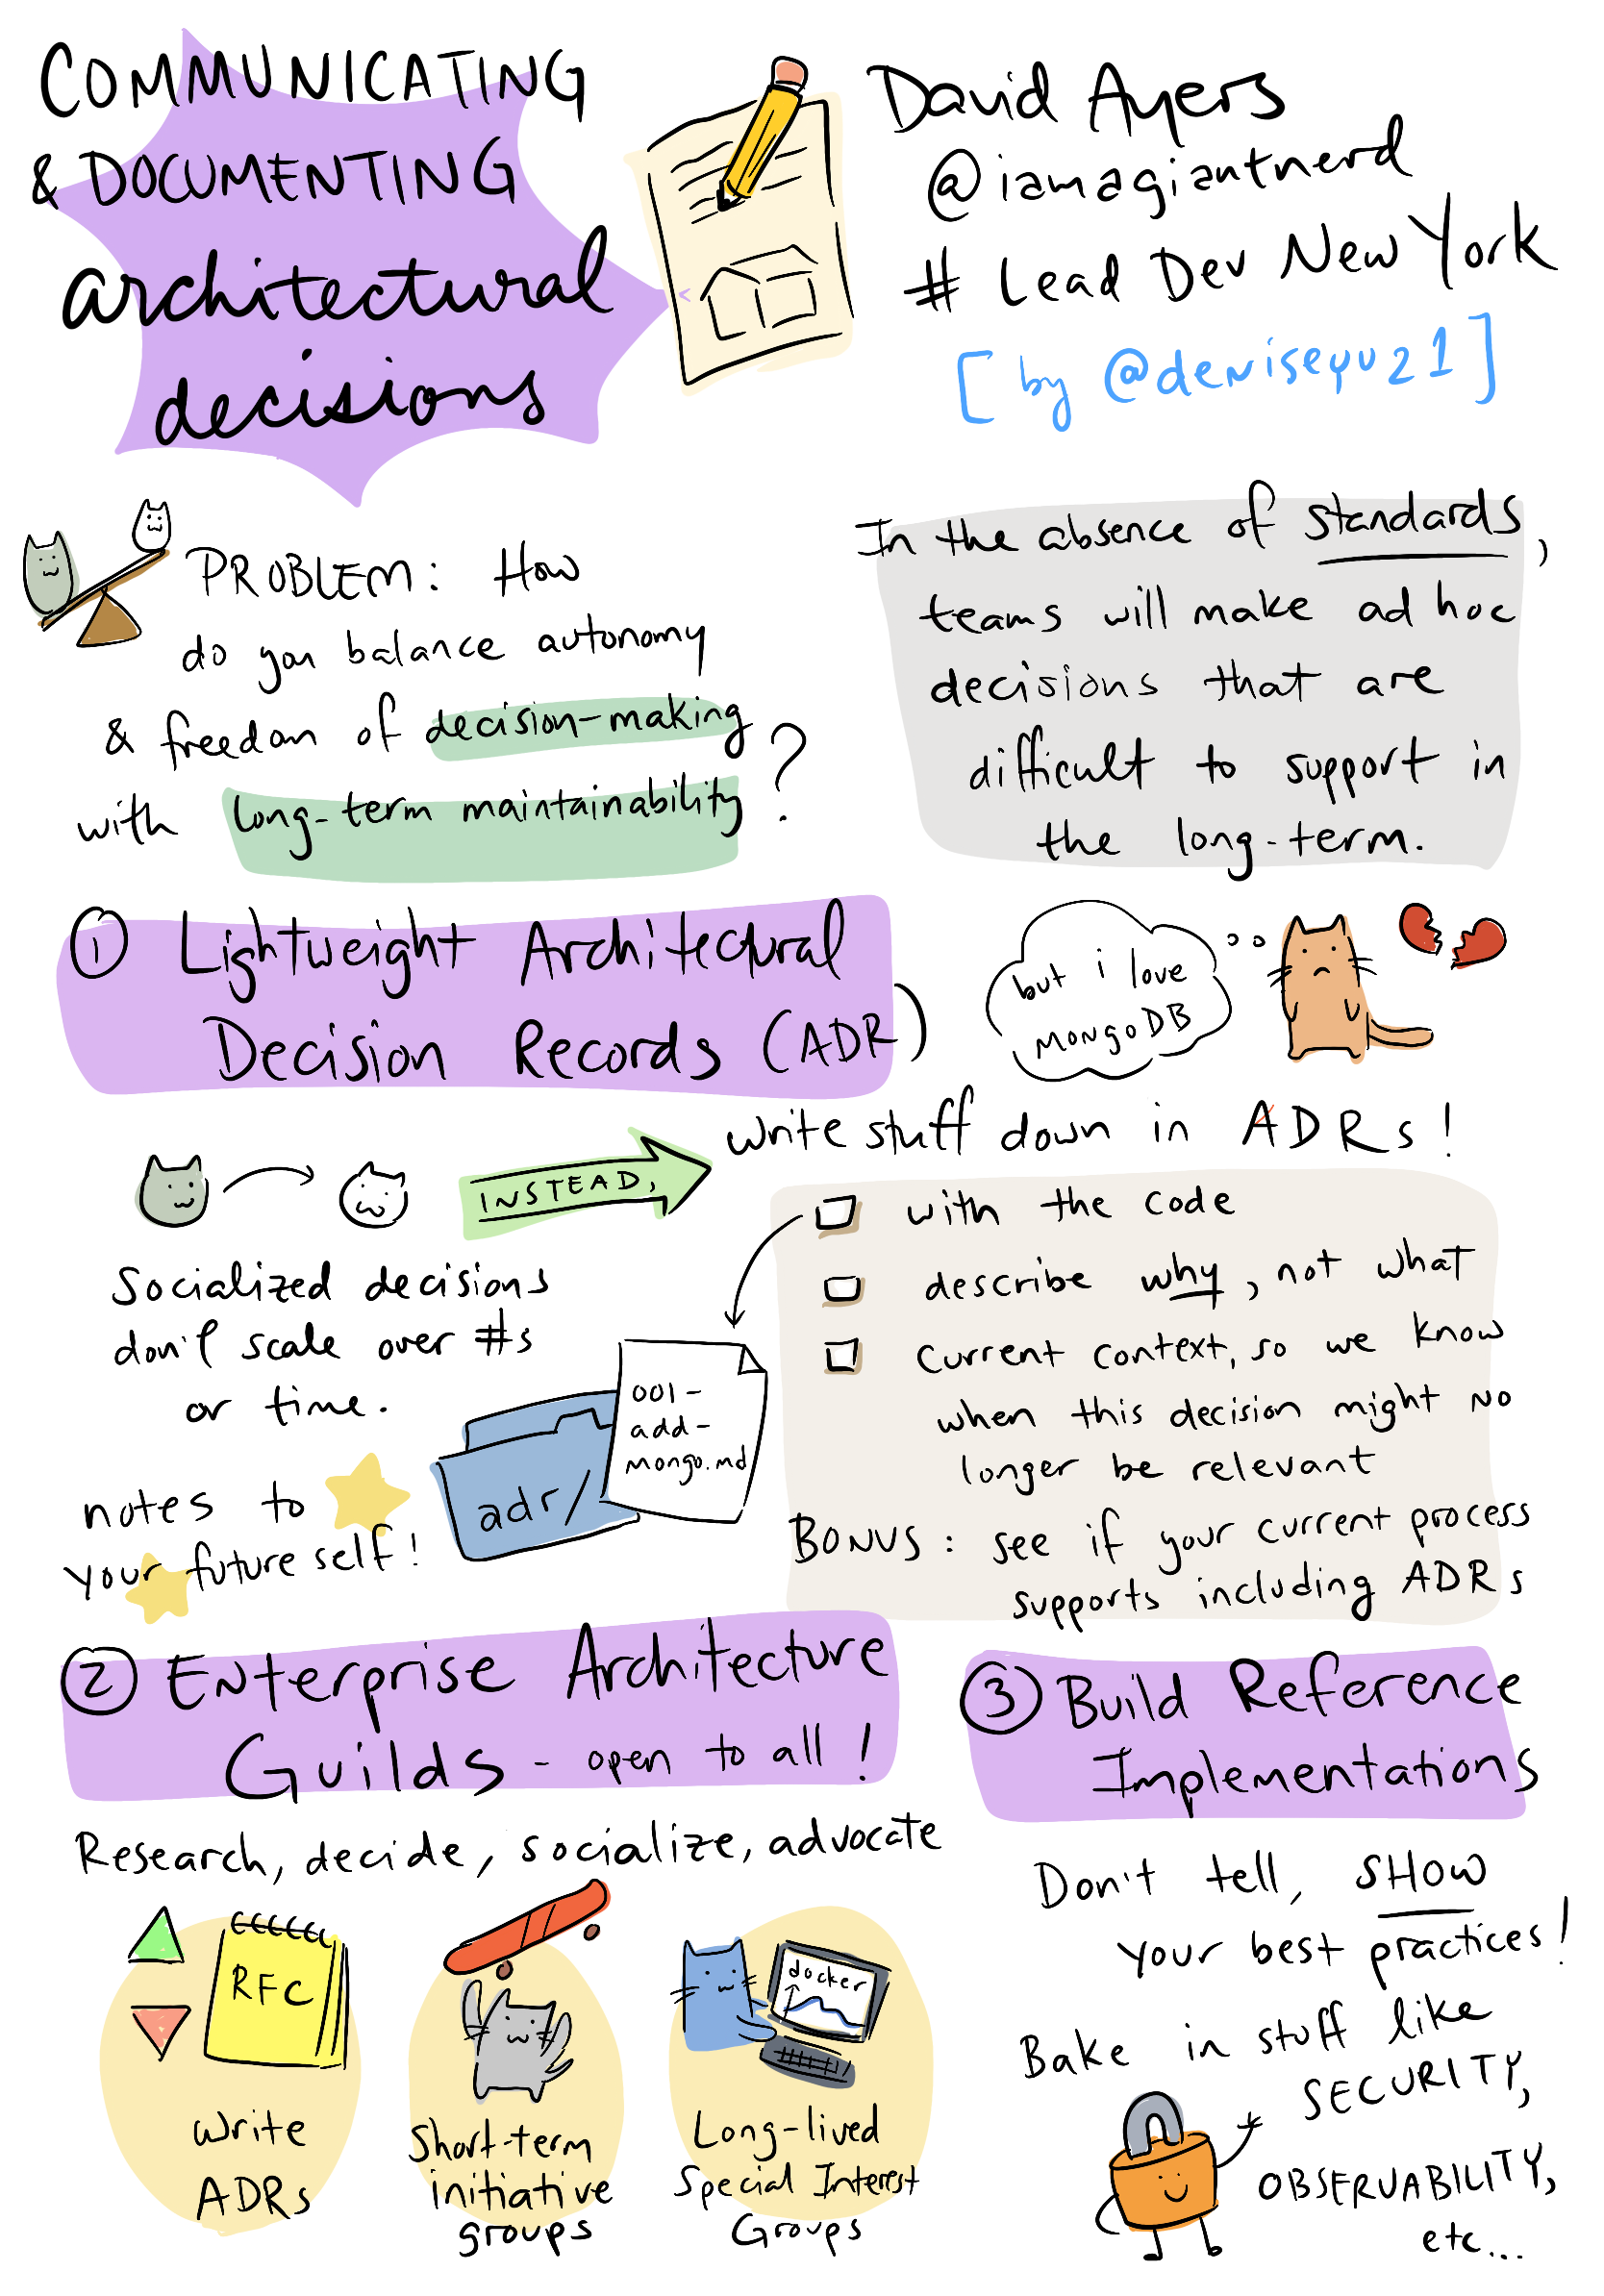 COMMUNICATING
& DOCUMENTING
architectural
decisions
David Ayers
@iamagiantnerd
# Lead Dev New York
[by @deniseyu21]
PROBLEM: How
do you balance autonomy
& freedom of decision-making
with long-term maintainability?
In the absence of standards,
teams will make ad hoc
decisions that are
difficult to support in
the long-term.
1 Lightweight Architectural
Decision Records (ADR)
but i love
MongoDB
Socialized decisions
don't scale over #s
or time.
INSTEAD,
write stuff down in ADRs!
with the code
describe why, not what
current context, so we know
when this decision might no
longer be relevant
BONUS: see if your current process
supports including ADRs
notes to
your future self!
adr/
001-
add-
mongo.md
2 Enterprise Architecture
Guilds - open to all!
Research, decide, socialize, advocate
RFC
Write
ADRs
Short-term
initiative
groups
docker
Long-lived
Special Interest
Groups
3 Build Reference
Implementations
Don't tell, SHOW
your best practices!
Bake in stuff like
SECURITY,
OBSERVABILITY,
etc...